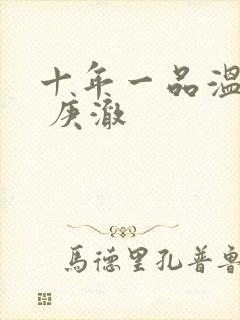 十年一品溫
庚澈
馬德里孔普魯